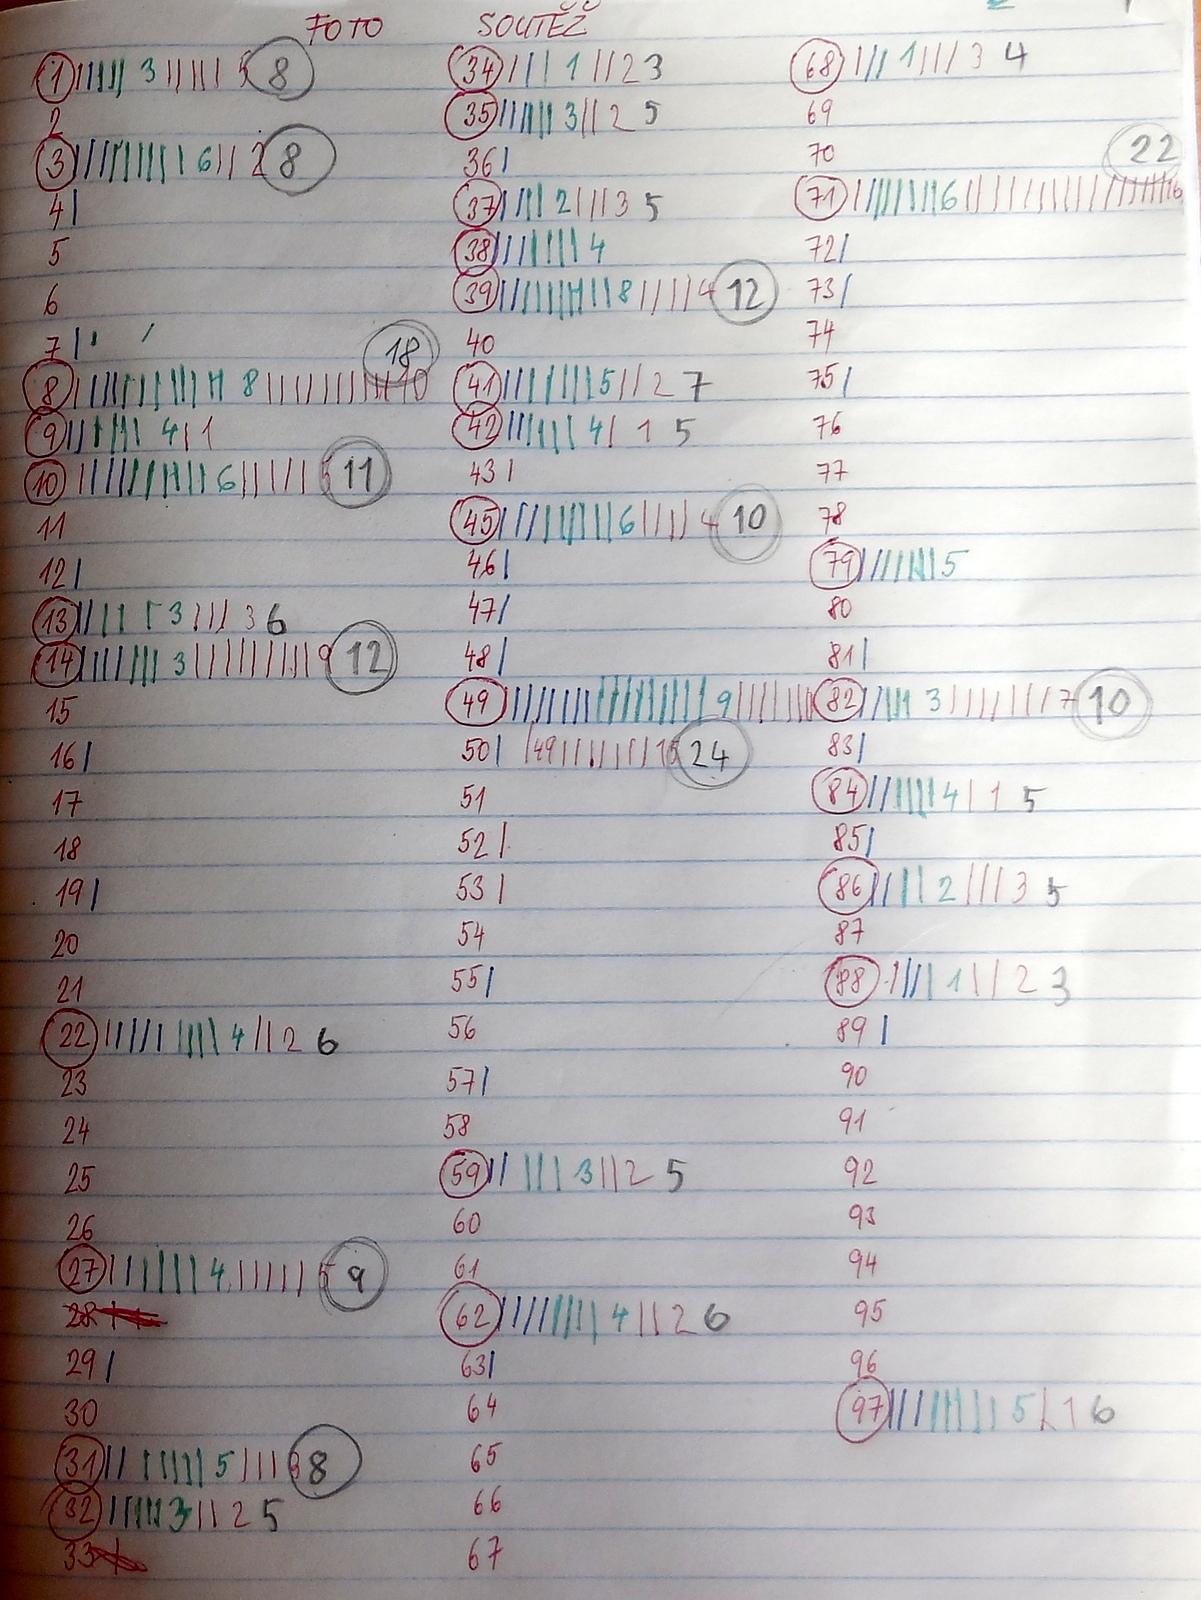 FOTO SOUTĚŽ
1 3 5 8
2
3 6 2 8
4
5
6
7
18
8 8 10
9 4 1
10 6 5 11
11
12
13 3 3 6
14 3 9 12
15
16
17
18
19
20
21
22 4 2 6
23
24
25
26
27 4 5 9
28
29
30
31 5 3 8
32 3 2 5
33
34 1 2 3
35 3 2 5
36
37 2 3 5
38 4
39 8 4 12
40
41 5 2 7
42 4 1 5
43
45 6 4 10
46
47
48
49 9
50 49 15 24
51
52
53
54
55
56
57
58
59 3 2 5
60
61
62 4 2 6
63
64
65
66
67
68 1 3 4
69
70
22
71 6 16
72
73
74
75
76
77
78
79 5
80
81
82 3 7 10
83
84 4 1 5
85
86 2 3 5
87
88 1 2 3
89
90
91
92
93
94
95
96
97 5 1 6